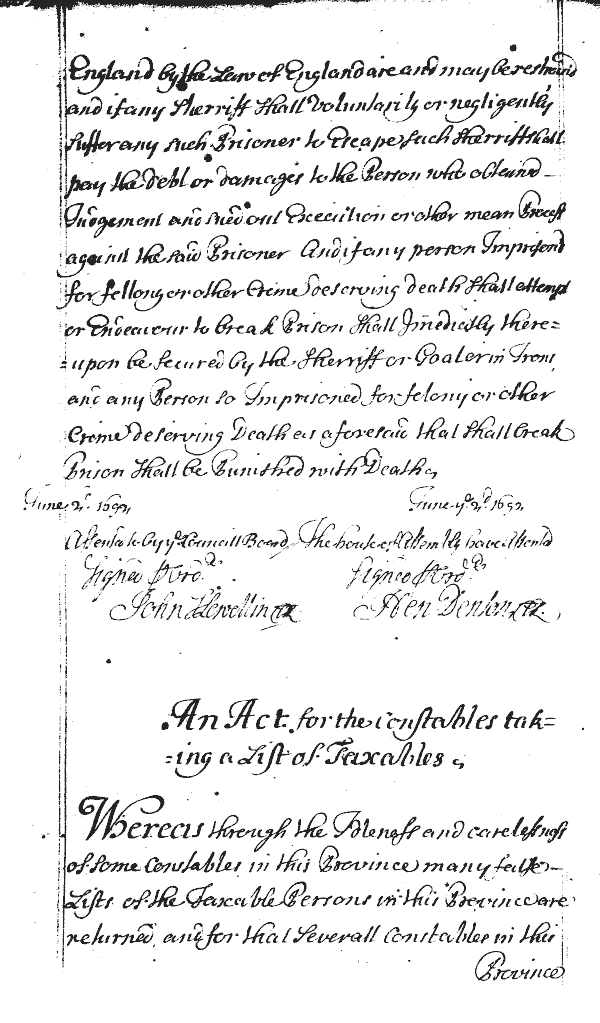 England by the Law of England are and may be restraind
and if any Sherriff Shall Voluntarily or negligently
Suffer any such Prisoner to Escape such Sherriff shall
pay the debt or damages to the Person who obteind
Judgement and sued out Execution or other mean Process
against the said Prisoner And if any person Imprisond
for fellony or other Crime deserving death Shall attempt
or Endeavour to break Prison Shall Jmediatly there=
=upon be Secured by the Sherriff or Goaler in Irons
and any Person so Imprisoned for felony or other
Crime deserving Death as aforesaid that Shall break
Prison Shall be Punished with Death,
June 2d. 1692, June ye 2d. 1692,
Assented to by ye Councill Board, The house of Assembly have Assented
Signed p Ordr. Signed p Ordr.
John Llewellin Hen Denton
An Act for the Constables tak=
=ing a List of Taxables,
Whereas through the Idleness and carelessness
of some Constables in this Province many false
Lists of the Taxable Persons in this Province are
returned, and for that Severall Constables in this
Province